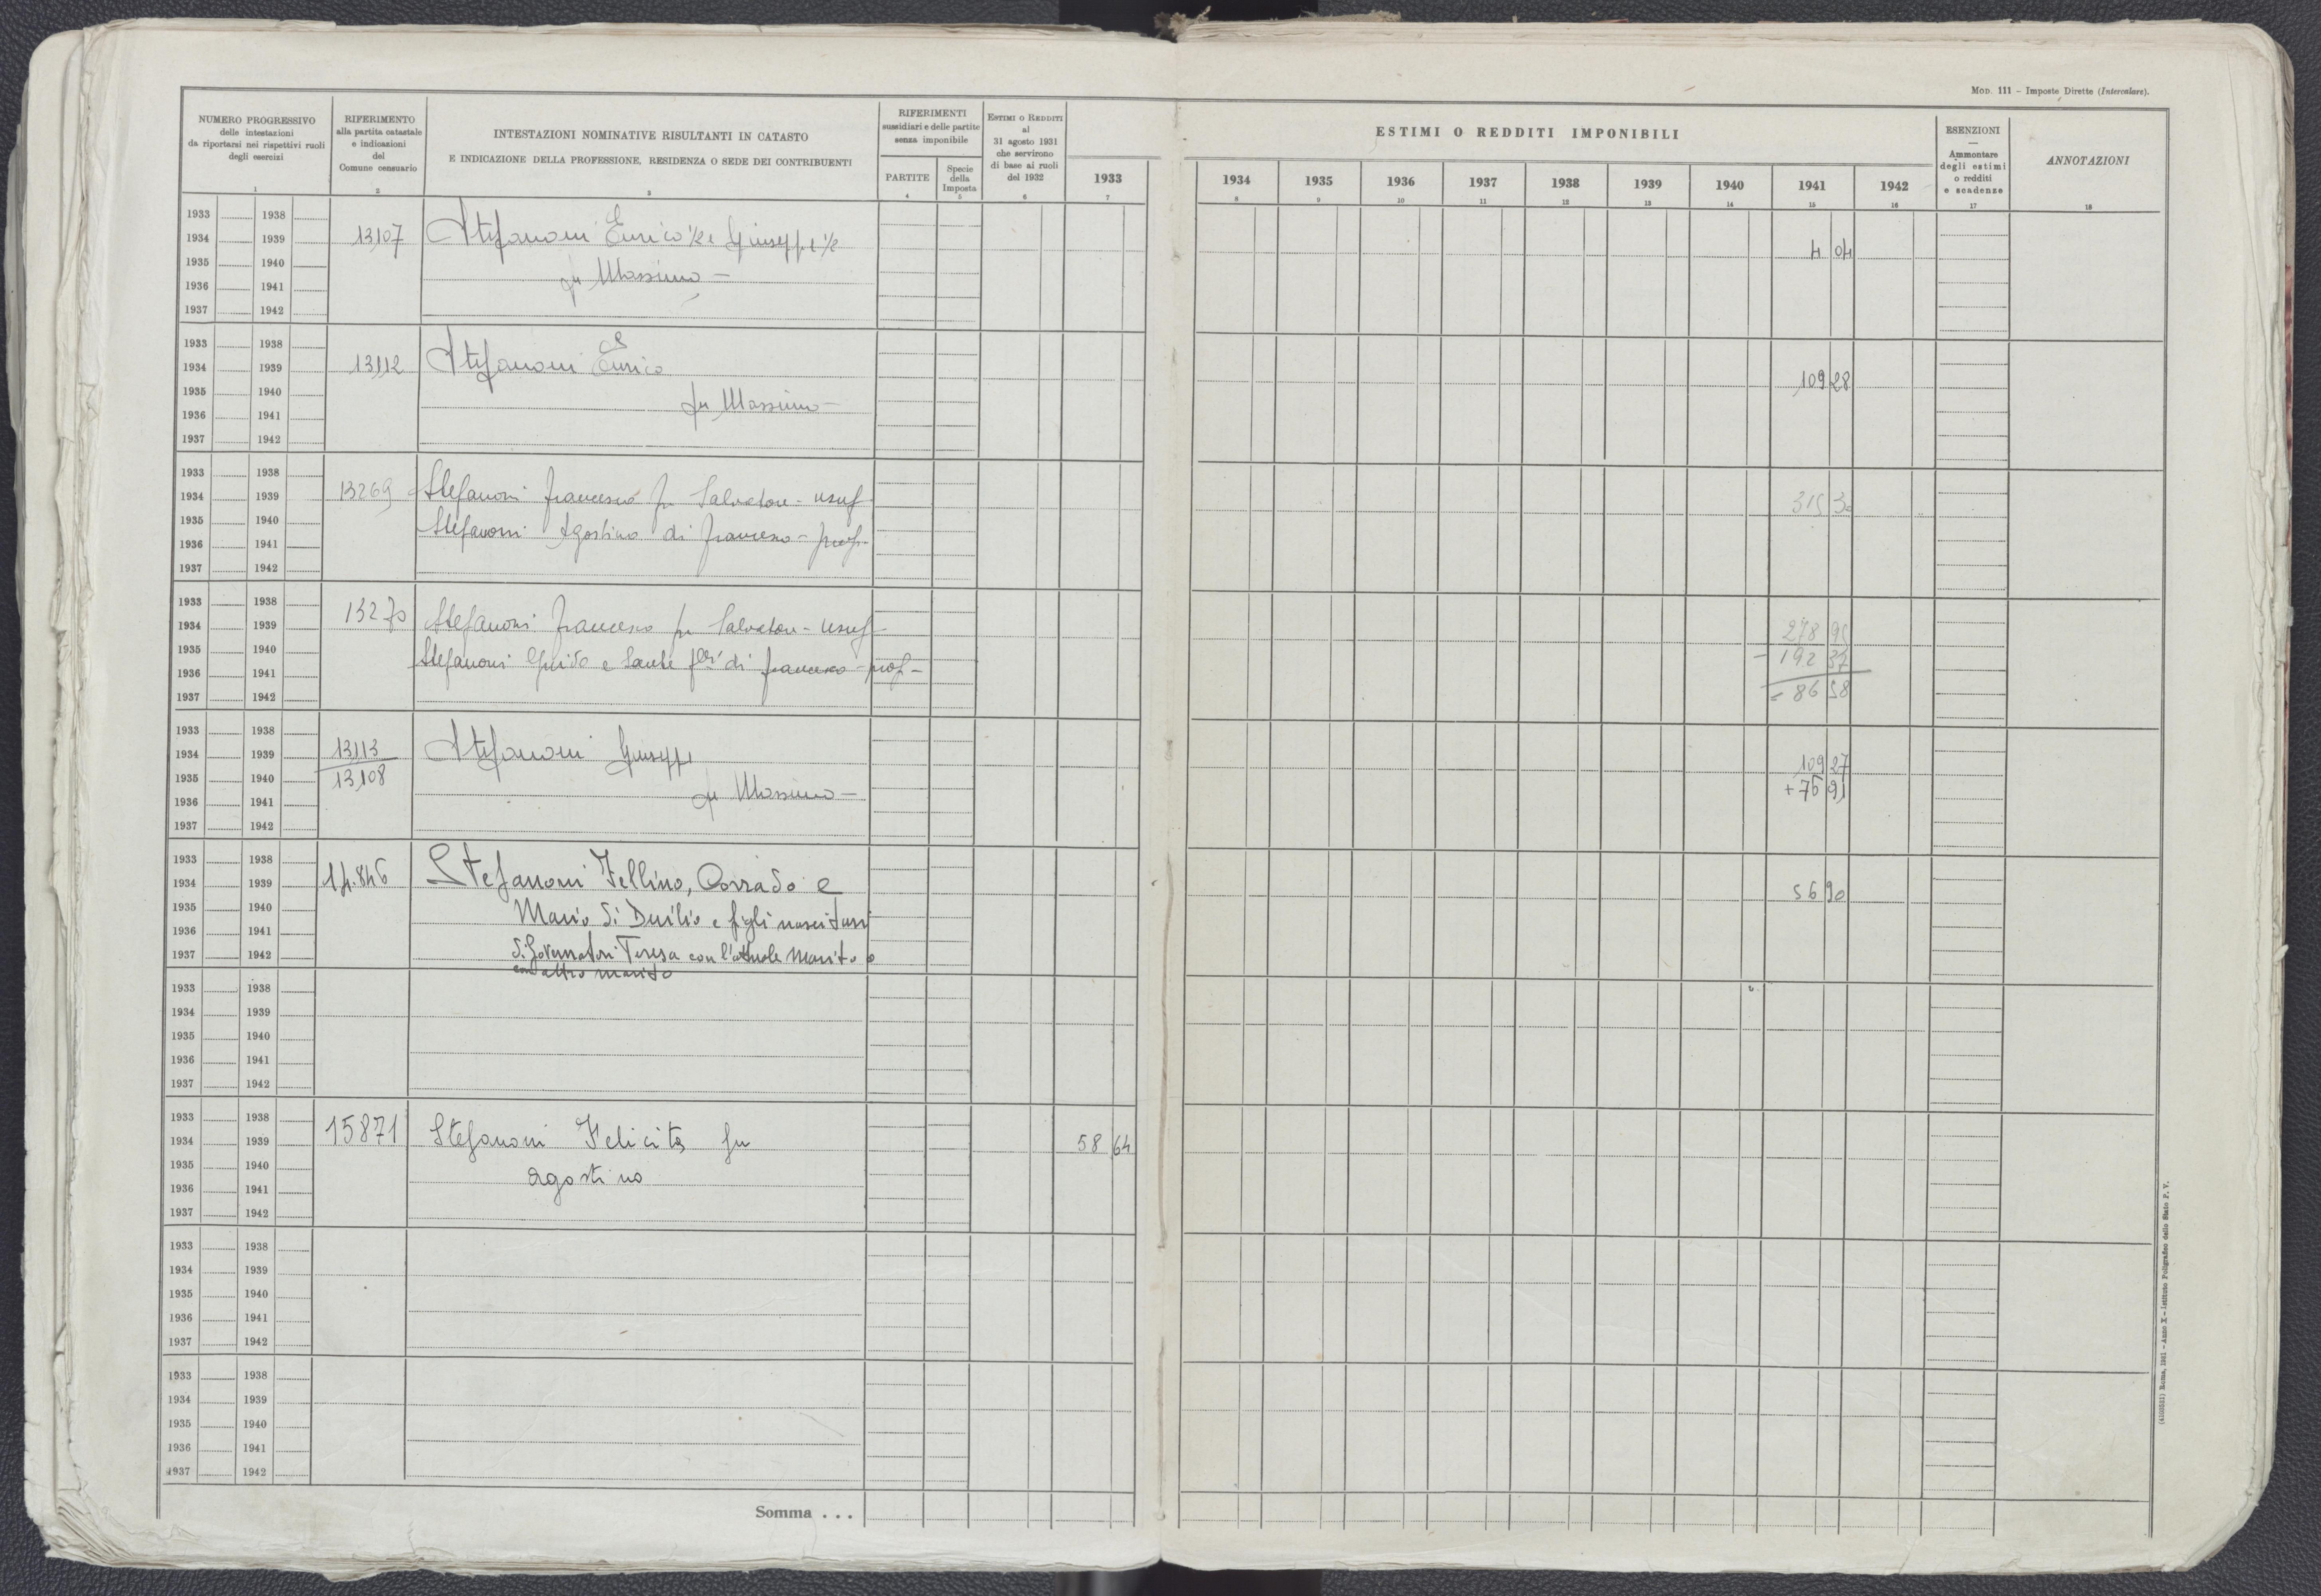 MOD. 111 – Imposte Dirette (Intercalare).
NUMERO PROGRESSIVO
delle intestazioni
da riportarsi nei rispettivi ruoli
degli esercizi
1
RIFERIMENTO
alla partita catastale
e indicazioni
del
Comune censuario
2
INTESTAZIONI NOMINATIVE RISULTANTI IN CATASTO
E INDICAZIONE DELLA PROFESSIONE, RESIDENZA O SEDE DEI CONTRIBUENTI
3
RIFERIMENTI
sussidiari e delle partite
senza imponibile
PARTITE
4
Specie
della
Imposta
5
ESTIMI O REDDITI
al
31 agosto 1931
che servirono
di base ai ruoli
del 1932
6
1933
7
ESTIMI O REDDITI IMPONIBILI
1934 1935 1936 1937 1938 1939 1940 1941 1942
8 9 10 11 12 13 14 15 16
ESENZIONI
—
Ammontare
degli estimi
o redditi
e scadenze
17
ANNOTAZIONI
18
1933 1938
1934 1939 13107 Stefanoni Enrico 1/2 e Giuseppe 1/2 4 04
1935 1940 fu Massimo –
1936 1941
1937 1942
1933 1938
1934 1939 13112 Stefanoni Enrico 109 28
1935 1940
1936 1941 fu Massimo –
1937 1942
1933 1938
1934 1939 13269 Stefanoni Francesco fu Salvatore - usuf 315 30
1935 1940 Stefanoni Agostino di Francesco - prop.
1936 1941
1937 1942
1933 1938
1934 1939 13270 Stefanoni Francesco fu Salvatore - usuf 278 95
1935 1940 Stefanoni Guido e Sante f.lli di Francesco - prop - – 192 37
1936 1941
1937 1942 = 86 58
1933 1938
1934 1939 13113 Stefanoni Giuseppe 109 27
1935 1940 13108 fu Massimo – + 76 91
1936 1941
1937 1942
1933 1938
1934 1939 14.846 Stefanoni Fellino, Corrado e 56 90
1935 1940 Mario di Duilio e figli nascituri
1936 1941
1937 1942 di Governatori Teresa con l'attuale Marito o
con altro marito
1933 1938
1934 1939
1935 1940
1936 1941
1937 1942
1933 1938
1934 1939 15871 Stefanoni Felicita fu 58 64
1935 1940 Agostino
1936 1941
1937 1942
1933 1938
1934 1939
1935 1940
1936 1941
1937 1942
1933 1938
1934 1939
1935 1940
1936 1941
1937 1942
Somma . . .
Roma, 1931 – Anno X – Istituto Poligrafico dello Stato P. V.